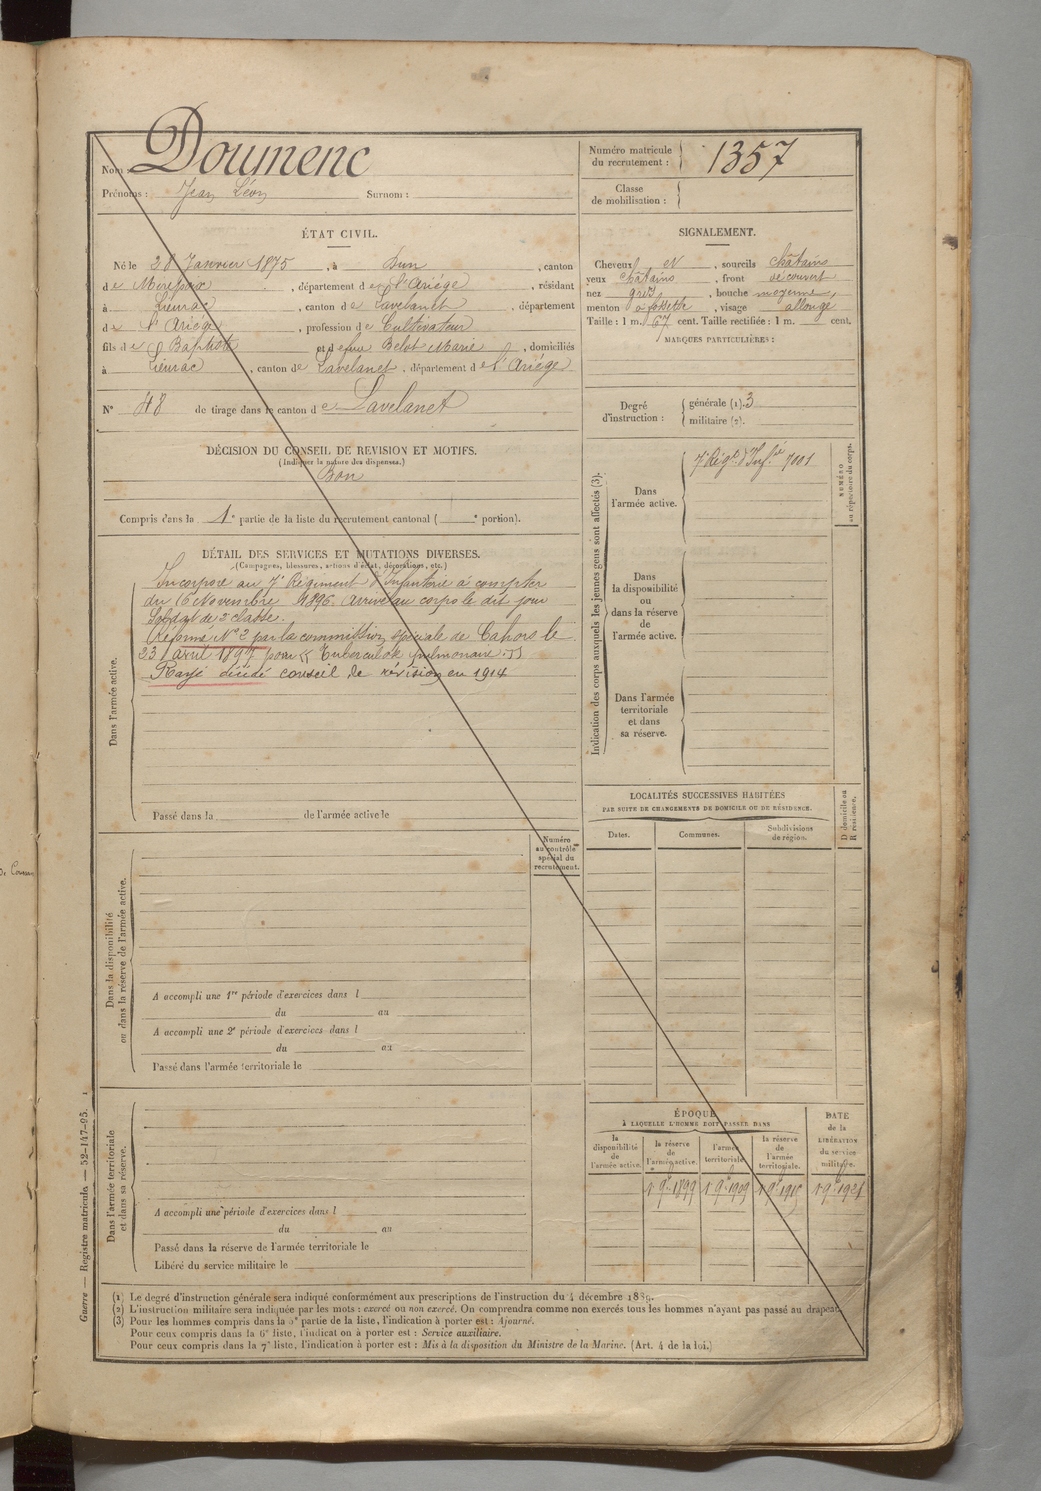 Nom : Doumenc
Prénoms : Jean Léon Surnom :
Numéro matricule du recrutement : 1357
Classe de mobilisation :
ÉTAT CIVIL.
Né le 28 Janvier 1875, à Dun, canton
de Mirepoix, département de l'Ariège, résidant
à Lieurac, canton de Lavelanet, département
de l'Ariège, profession de Cultivateur
fils de Baptiste et de feue Belot Marie, domiciliés
à Lieurac, canton de Lavelanet, département de l'Ariège
N° 48 de tirage dans le canton de Lavelanet
SIGNALEMENT.
Cheveux et, sourcils châtains
yeux châtains, front découvert
nez gros, bouche moyenne,
menton à fossette, visage allongé
Taille : 1 m. 67 cent. Taille rectifiée : 1 m. cent.
MARQUES PARTICULIÈRES :
Degré d'instruction : générale (1). 3
militaire (2).
DÉCISION DU CONSEIL DE REVISION ET MOTIFS.
(Indiquer la nature des dispenses.)
Bon
Compris dans la 1e partie de la liste du recrutement cantonal ( e portion).
DÉTAIL DES SERVICES ET MUTATIONS DIVERSES.
(Campagnes, blessures, actions d'éclat, décorations, etc.)
Dans l'armée active.
Incorporé au 7e Régiment d'Infanterie à compter
du 16 Novembre 1896. Arrivé au corps le dit jour
Soldat de 2e classe.
Réformé N° 2 par la commission spéciale de Cahors le
23 avril 1897 pour « Tuberculose pulmonaire »
Rayé décédé conseil de révision en 1914
Passé dans la de l'armée active le
Numéro au contrôle spécial du recrutement.
Dans la disponibilité ou dans la réserve de l'armée active.
A accompli une 1re période d'exercices dans l
du au
A accompli une 2e période d'exercices dans l
du au
Passé dans l'armée territoriale le
Dans l'armée territoriale et dans sa réserve.
A accompli une période d'exercices dans l
du au
Passé dans la réserve de l'armée territoriale le
Libéré du service militaire le
Indication des corps auxquels les jeunes gens sont affectés (3).
NUMÉRO au répertoire du corps.
Dans l'armée active.
7e Régt d'Infie 7001
Dans la disponibilité ou dans la réserve de l'armée active.
Dans l'armée territoriale et dans sa réserve.
LOCALITÉS SUCCESSIVES HABITÉES
PAR SUITE DE CHANGEMENTS DE DOMICILE OU DE RÉSIDENCE.
D domicile ou R résidence.
Dates. Communes. Subdivisions de région.
ÉPOQUE
À LAQUELLE L'HOMME DOIT PASSER DANS
DATE de la LIBÉRATION du service militaire.
la disponibilité de l'armée active.
la réserve de l'armée active.
l'armée territoriale.
la réserve de l'armée territoriale.
1 9bre 1899 1 9bre 1909 1 9bre 1915 1 9bre 1921
(1) Le degré d'instruction générale sera indiqué conformément aux prescriptions de l'instruction du 4 décembre 1889.
(2) L'instruction militaire sera indiquée par les mots : exercé ou non exercé. On comprendra comme non exercés tous les hommes n'ayant pas passé au drapeau.
(3) Pour les hommes compris dans la 5e partie de la liste, l'indication à porter est : Ajourné.
Pour ceux compris dans la 6e liste, l'indication à porter est : Service auxiliaire.
Pour ceux compris dans la 7e liste, l'indication à porter est : Mis à la disposition du Ministre de la Marine. (Art. 4 de la loi.)
Guerre — Registre matricule. — 52-147-95.